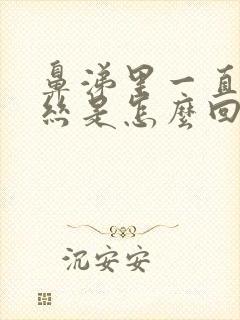 鼻涕里一直
絲是怎麼回
沉安安